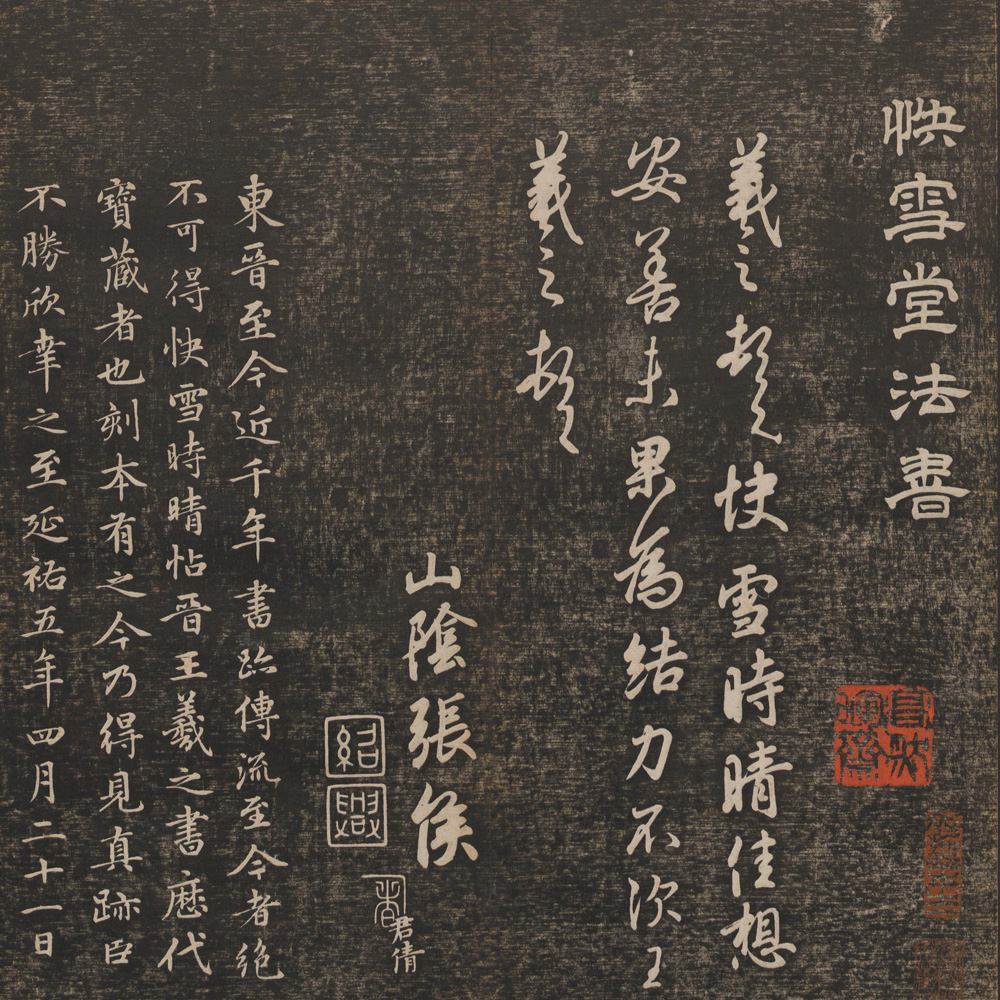 快雪堂法書
羲之頓首快雪時晴佳想
安善未果為結力不次王
羲之頓首
山陰張侯
君倩
紹興
東晉至今近千年書跡傳流至今者絕
不可得快雪時晴帖晉王羲之書歷代
寶藏者也刻本有之今乃得見真跡臣
不勝欣幸之至延祐五年四月二十一日